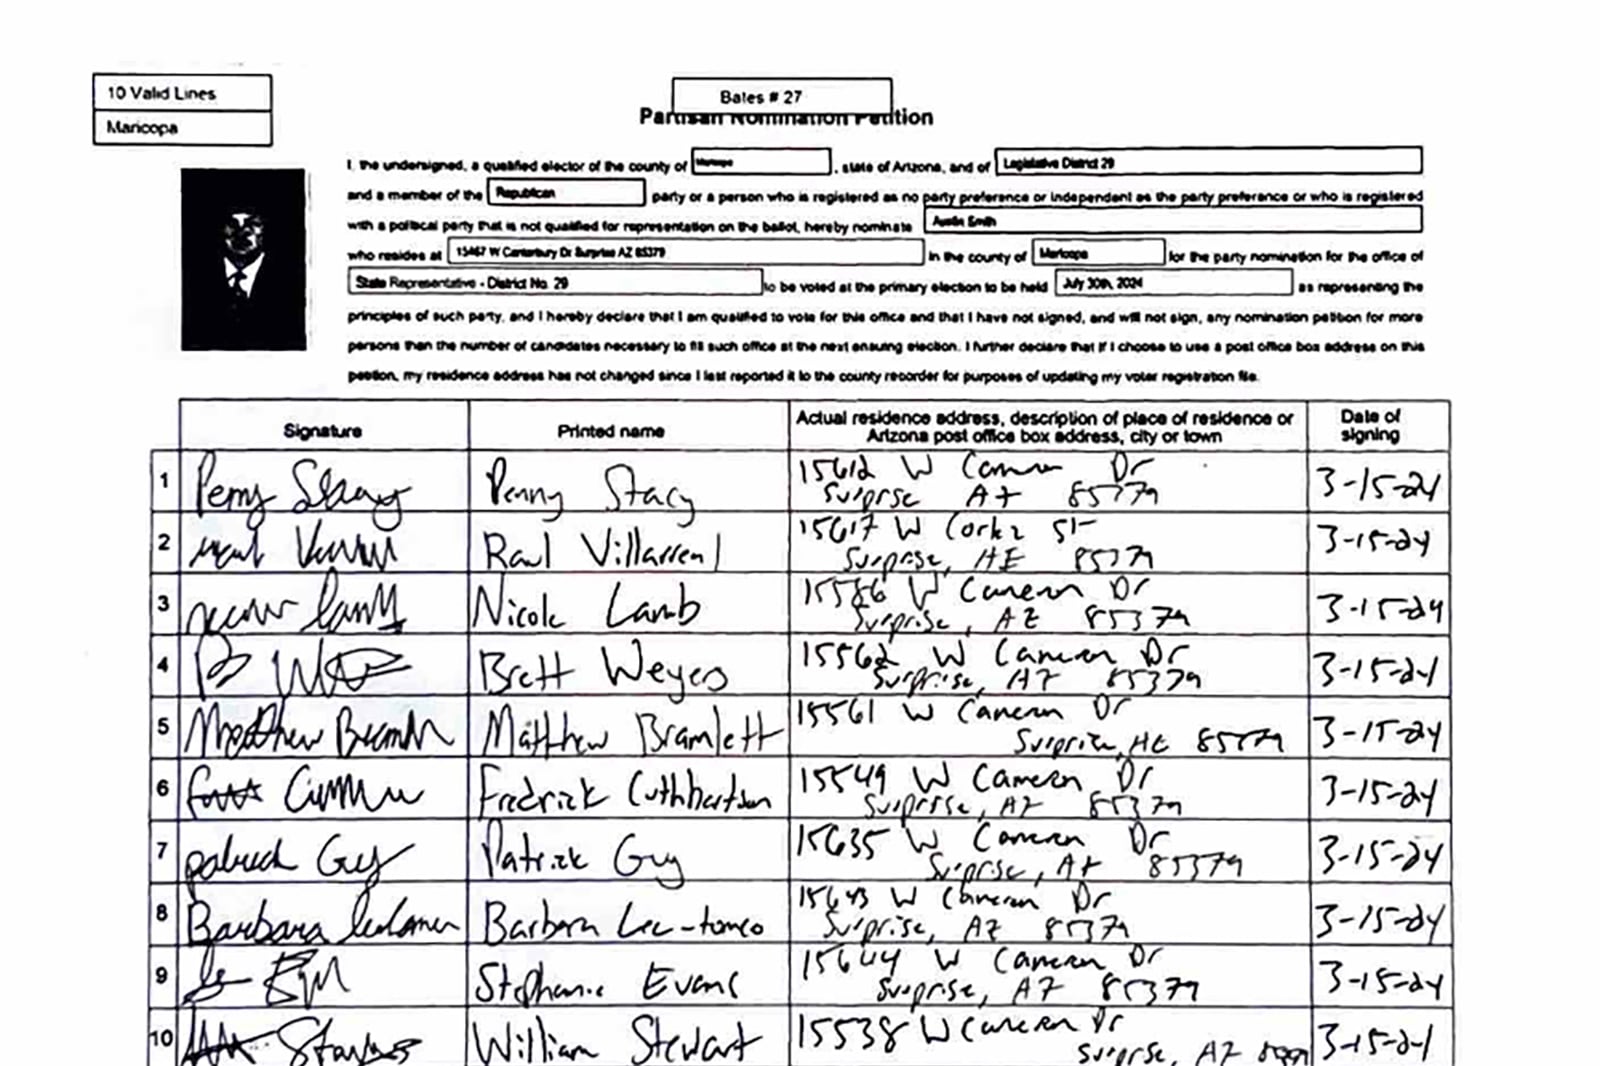 10 Valid Lines
Maricopa
Bates # 27
Partisan Nomination Petition
I, the undersigned, a qualified elector of the county of Maricopa, state of Arizona, and of Legislative District 29
and a member of the Republican party or a person who is registered as no party preference or independent as the party preference or who is registered
with a political party that is not qualified for representation on the ballot, hereby nominate Austin Smith
who resides at 15467 W Canterbury Dr Surprise AZ 85379 in the county of Maricopa for the party nomination for the office of
State Representative - District No. 29 to be voted at the primary election to be held July 30th, 2024 as representing the
principles of such party, and I hereby declare that I am qualified to vote for this office and that I have not signed, and will not sign, any nomination petition for more
persons than the number of candidates necessary to fill such office at the next ensuing election. I further declare that if I choose to use a post office box address on this
petition, my residence address has not changed since I last reported it to the county recorder for purposes of updating my voter registration file.
Signature Printed name Actual residence address, description of place of residence or Arizona post office box address, city or town Date of signing
1 Penny Stacy Penny Stacy 15612 W Cameron Dr 3-15-24
Surprse AZ 85379
2 Raul Villarreal 15617 W St 3-15-24
Surprise, AZ 85379
3 Nicole Lamb 15586 W Cameron Dr 3-15-24
Surprise, AZ 85379
4 Brett Weyers 15562 W Cameron Dr 3-15-24
Surprise, AZ 85379
5 Matthew Matthew Bramlett 15561 W Cameron Dr 3-15-24
Surprise, AZ 85379
6 Fredrick Cuthbertson 15549 W Cameron Dr 3-15-24
Surprise, AZ 85379
7 Patrick Guy Patrick Guy 15635 W Cameron Dr 3-15-24
Surprise, AZ 85379
8 Barbara Barbara Lee-tomeo 15643 W Cameron Dr 3-15-24
Surprise, AZ 85379
9 Stephanie Evans 15644 W Cameron Dr 3-15-24
Surprise, AZ 85379
10 William Stewart 15538 W Cameron Dr 3-15-24
Surprse, AZ